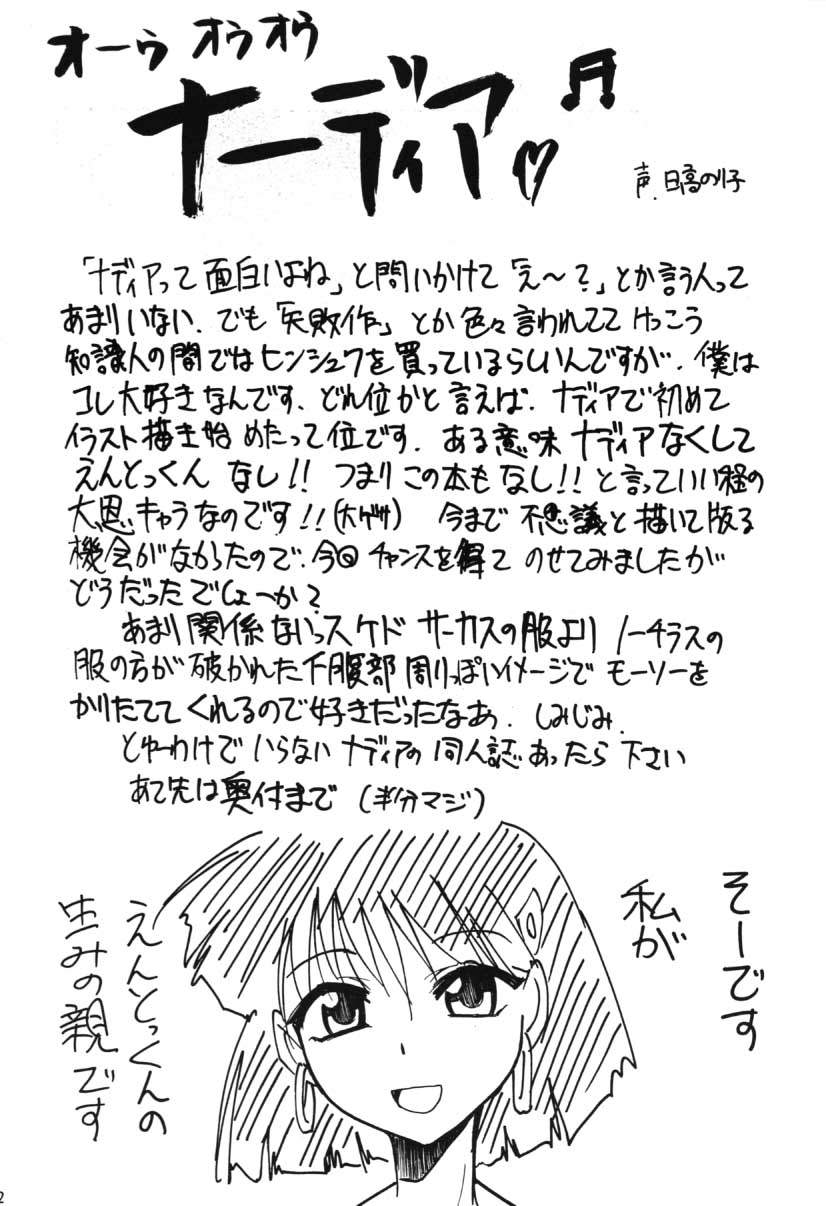 オーゥ オゥオゥ
ナーディア♡♬
声.日高のり子
「ナディアって面白いよね」と問いかけて「え〜?」とか言う人って
あまりいない.でも「失敗作」とか色々言われててけっこう
知識人の間ではヒンシュクを買っているらしいんですが.僕は
コレ大好きなんです.どれ位かと言えば.ナディアで初めて
イラスト描き始めたって位です.ある意味ナディアなくして
えんとっくん なし!! つまりこの本もなし!! と言っていい程の
大恩キャラなのです!!(大ゲサ) 今まで不思議と描いて版る
機会がなかったので.今回チャンスを得てのせてみましたが
どうだったでしょーか?
あまり関係ないっスケド サーカスの服より ノーチラスの
服の方が破かれた下腹部周りっぽいイメージでモーソーを
かりたててくれるので好きだったなあっ.しみじみ.
とゆーわけでいらないナディアの同人誌あったら下さい
あて先は奥付まで(半分マジ)
そーです
私が
えんとっくんの
生みの親です
2